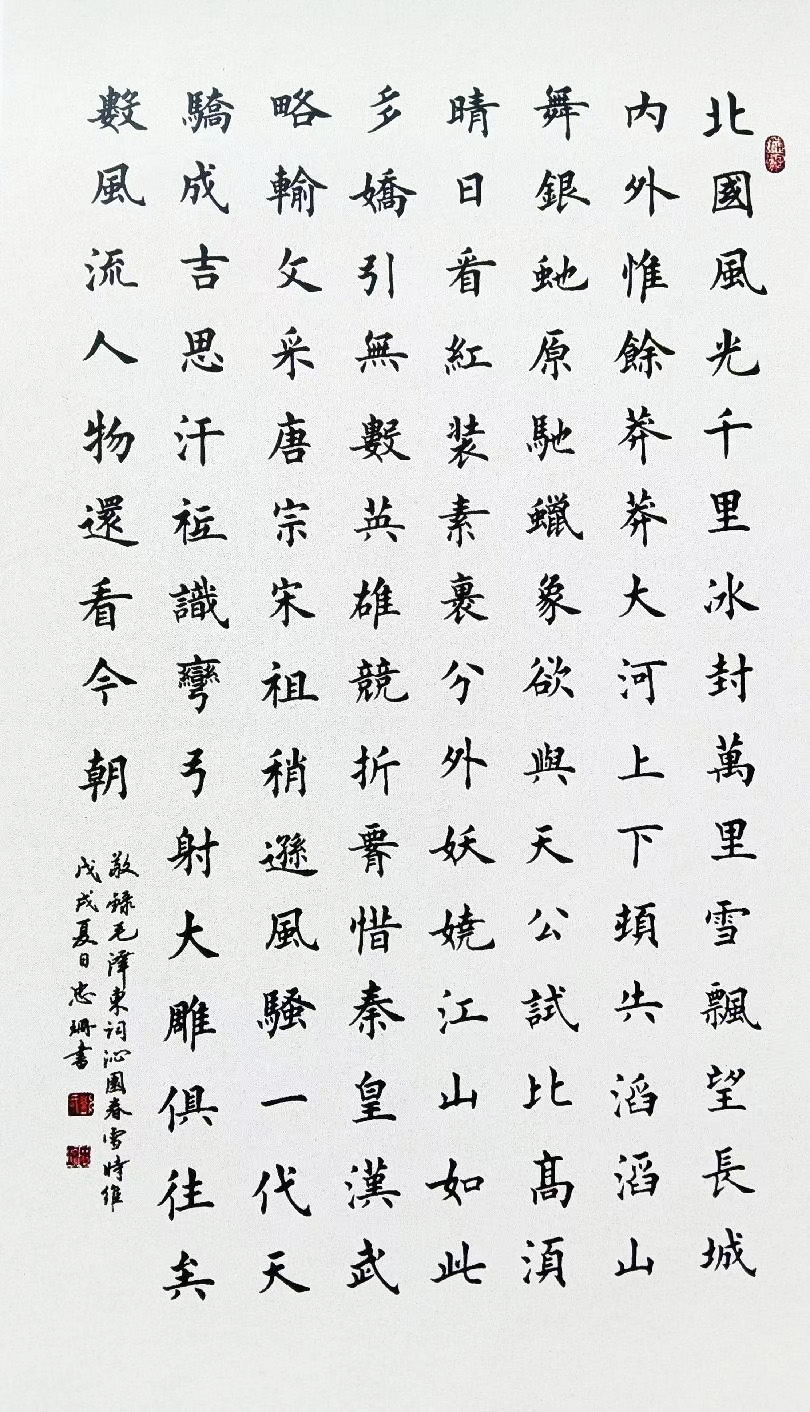 北國風光千里冰封萬里雪飄望長城
内外惟餘莽莽大河上下頓失滔滔山
舞銀虵原馳蠟象欲與天公試比髙須
晴日看紅装素裹分外妖嬈江山如此
多嬌引無數英雄競折署惜秦皇漢武
略輸文采唐宗宋祖稍遜風騷一代天
驕成吉思汗祗識彎弓射大雕俱往矣
數風流人物還看今朝
敬錄毛澤東词沁園春雪時維
戊戌夏日忠珊書